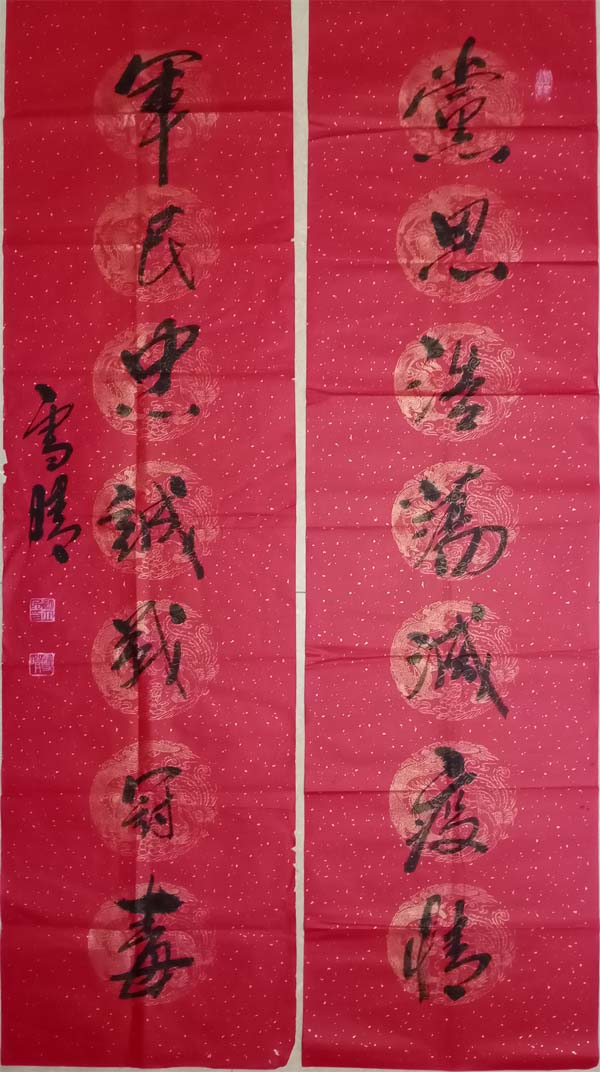 黨恩浩蕩滅疫情
軍民忠誠戰冠毒
雪晴